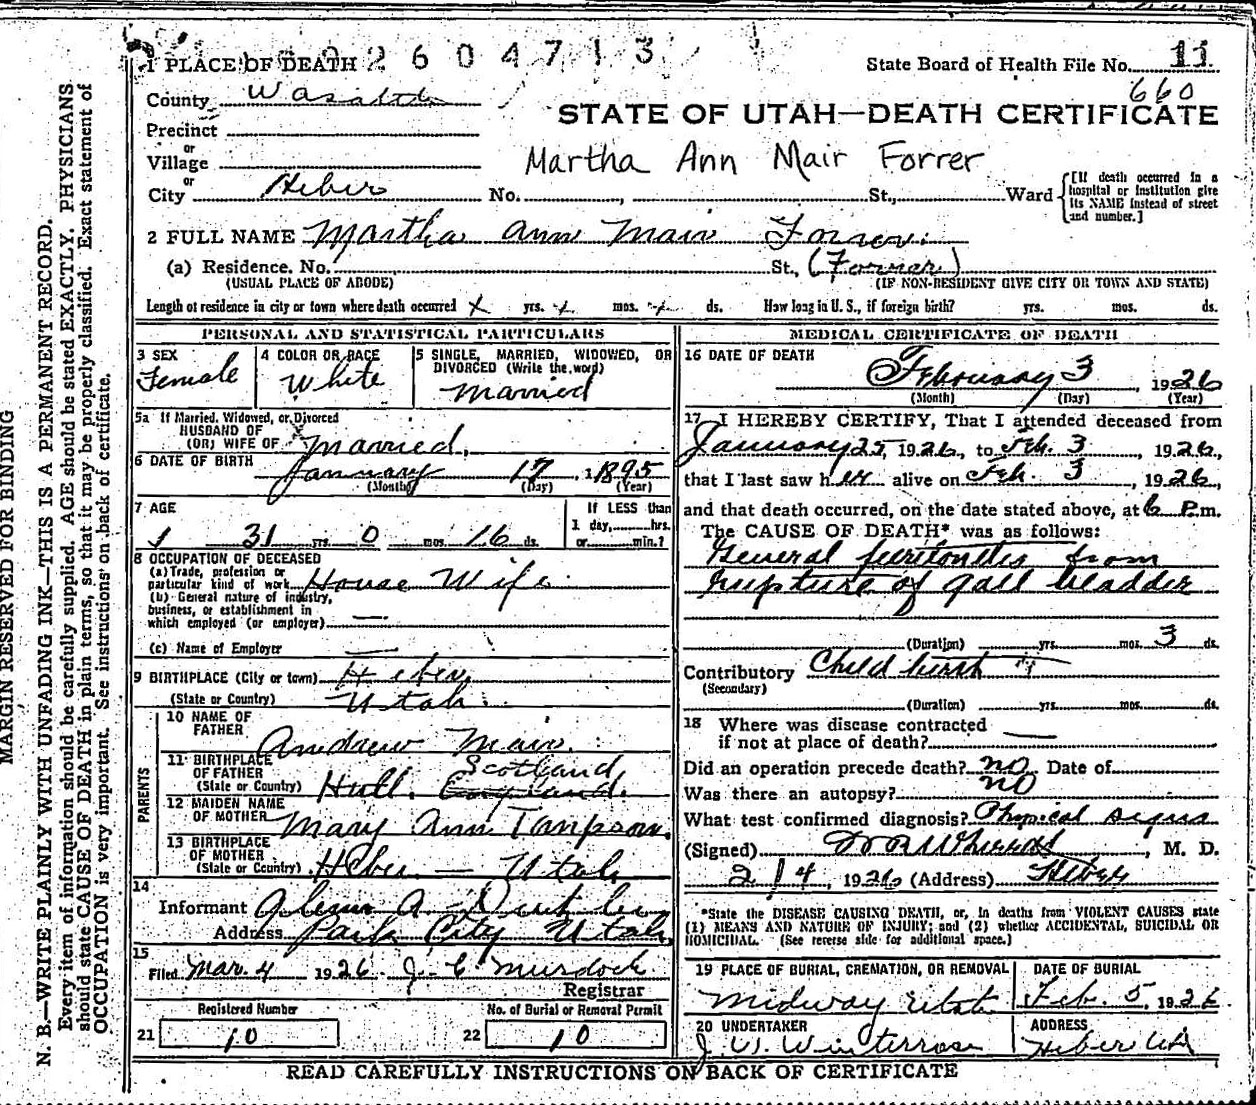 2604713
1 PLACE OF DEATH
State Board of Health File No. 11
660
County Wasatch
STATE OF UTAH—DEATH CERTIFICATE
Precinct
or
Village
Martha Ann Mair Forrer
or
City Heber No. , St., Ward
[If death occurred in a hospital or institution give its NAME instead of street and number.]
2 FULL NAME Martha Ann Mair Forrer
(a) Residence. No. St., (Forrer)
(USUAL PLACE OF ABODE) (IF NON-RESIDENT GIVE CITY OR TOWN AND STATE)
Length of residence in city or town where death occurred yrs. mos. ds. How long in U. S., if foreign birth? yrs. mos. ds.
PERSONAL AND STATISTICAL PARTICULARS
3 SEX Female
4 COLOR OR RACE White
5 SINGLE, MARRIED, WIDOWED, OR DIVORCED (Write the word)
Married
5a If Married, Widowed, or Divorced
HUSBAND OF
(OR) WIFE OF Married
6 DATE OF BIRTH January 17, 1895
(Month) (Day) (Year)
7 AGE
31 yrs. 0 mos. 16 ds.
If LESS than
1 day, hrs.
or min.?
8 OCCUPATION OF DECEASED
(a) Trade, profession or
particular kind of work House Wife
(b) General nature of industry,
business, or establishment in
which employed (or employer) —
(c) Name of Employer —
9 BIRTHPLACE (City or town) Heber
(State or Country) Utah
PARENTS
10 NAME OF
FATHER Andrew Mair
11 BIRTHPLACE
OF FATHER Scotland
(State or Country) Hull. England.
12 MAIDEN NAME
OF MOTHER Mary Ann
13 BIRTHPLACE
OF MOTHER
(State or Country) Heber — Utah
14
Informant A
Address Park City Utah
15
Filed Mar. 4 1926 J. C. Murdock
Registrar
Registered Number
21 10
No. of Burial or Removal Permit
22 10
MEDICAL CERTIFICATE OF DEATH
16 DATE OF DEATH
February 3, 1926
(Month) (Day) (Year)
17 I HEREBY CERTIFY, That I attended deceased from
January 25, 1926, to Feb. 3, 1926,
that I last saw her alive on Feb. 3, 1926,
and that death occurred, on the date stated above, at 6 P.m.
The CAUSE OF DEATH* was as follows:
General peritonitis from
rupture of gall bladder
(Duration) yrs. mos. 3 ds.
Contributory Child birth
(Secondary)
(Duration) yrs. mos. ds.
18 Where was disease contracted
if not at place of death? —
Did an operation precede death? no Date of
Was there an autopsy? no
What test confirmed diagnosis? Physical signs
(Signed) , M. D.
2/4, 1926 (Address) Heber
*State the DISEASE CAUSING DEATH, or, in deaths from VIOLENT CAUSES state
(1) MEANS AND NATURE OF INJURY; and (2) whether ACCIDENTAL, SUICIDAL OR
HOMICIDAL. (See reverse side for additional space.)
19 PLACE OF BURIAL, CREMATION, OR REMOVAL
Midway Utah
DATE OF BURIAL
Feb. 5, 1926
20 UNDERTAKER
J. W. Winterrose
ADDRESS
Heber Ut
READ CAREFULLY INSTRUCTIONS ON BACK OF CERTIFICATE
MARGIN RESERVED FOR BINDING
N. B.—WRITE PLAINLY WITH UNFADING INK—THIS IS A PERMANENT RECORD.
Every item of information should be carefully supplied. AGE should be stated EXACTLY. PHYSICIANS
should state CAUSE OF DEATH in plain terms, so that it may be properly classified. Exact statement of
OCCUPATION is very important. See instructions on back of certificate.